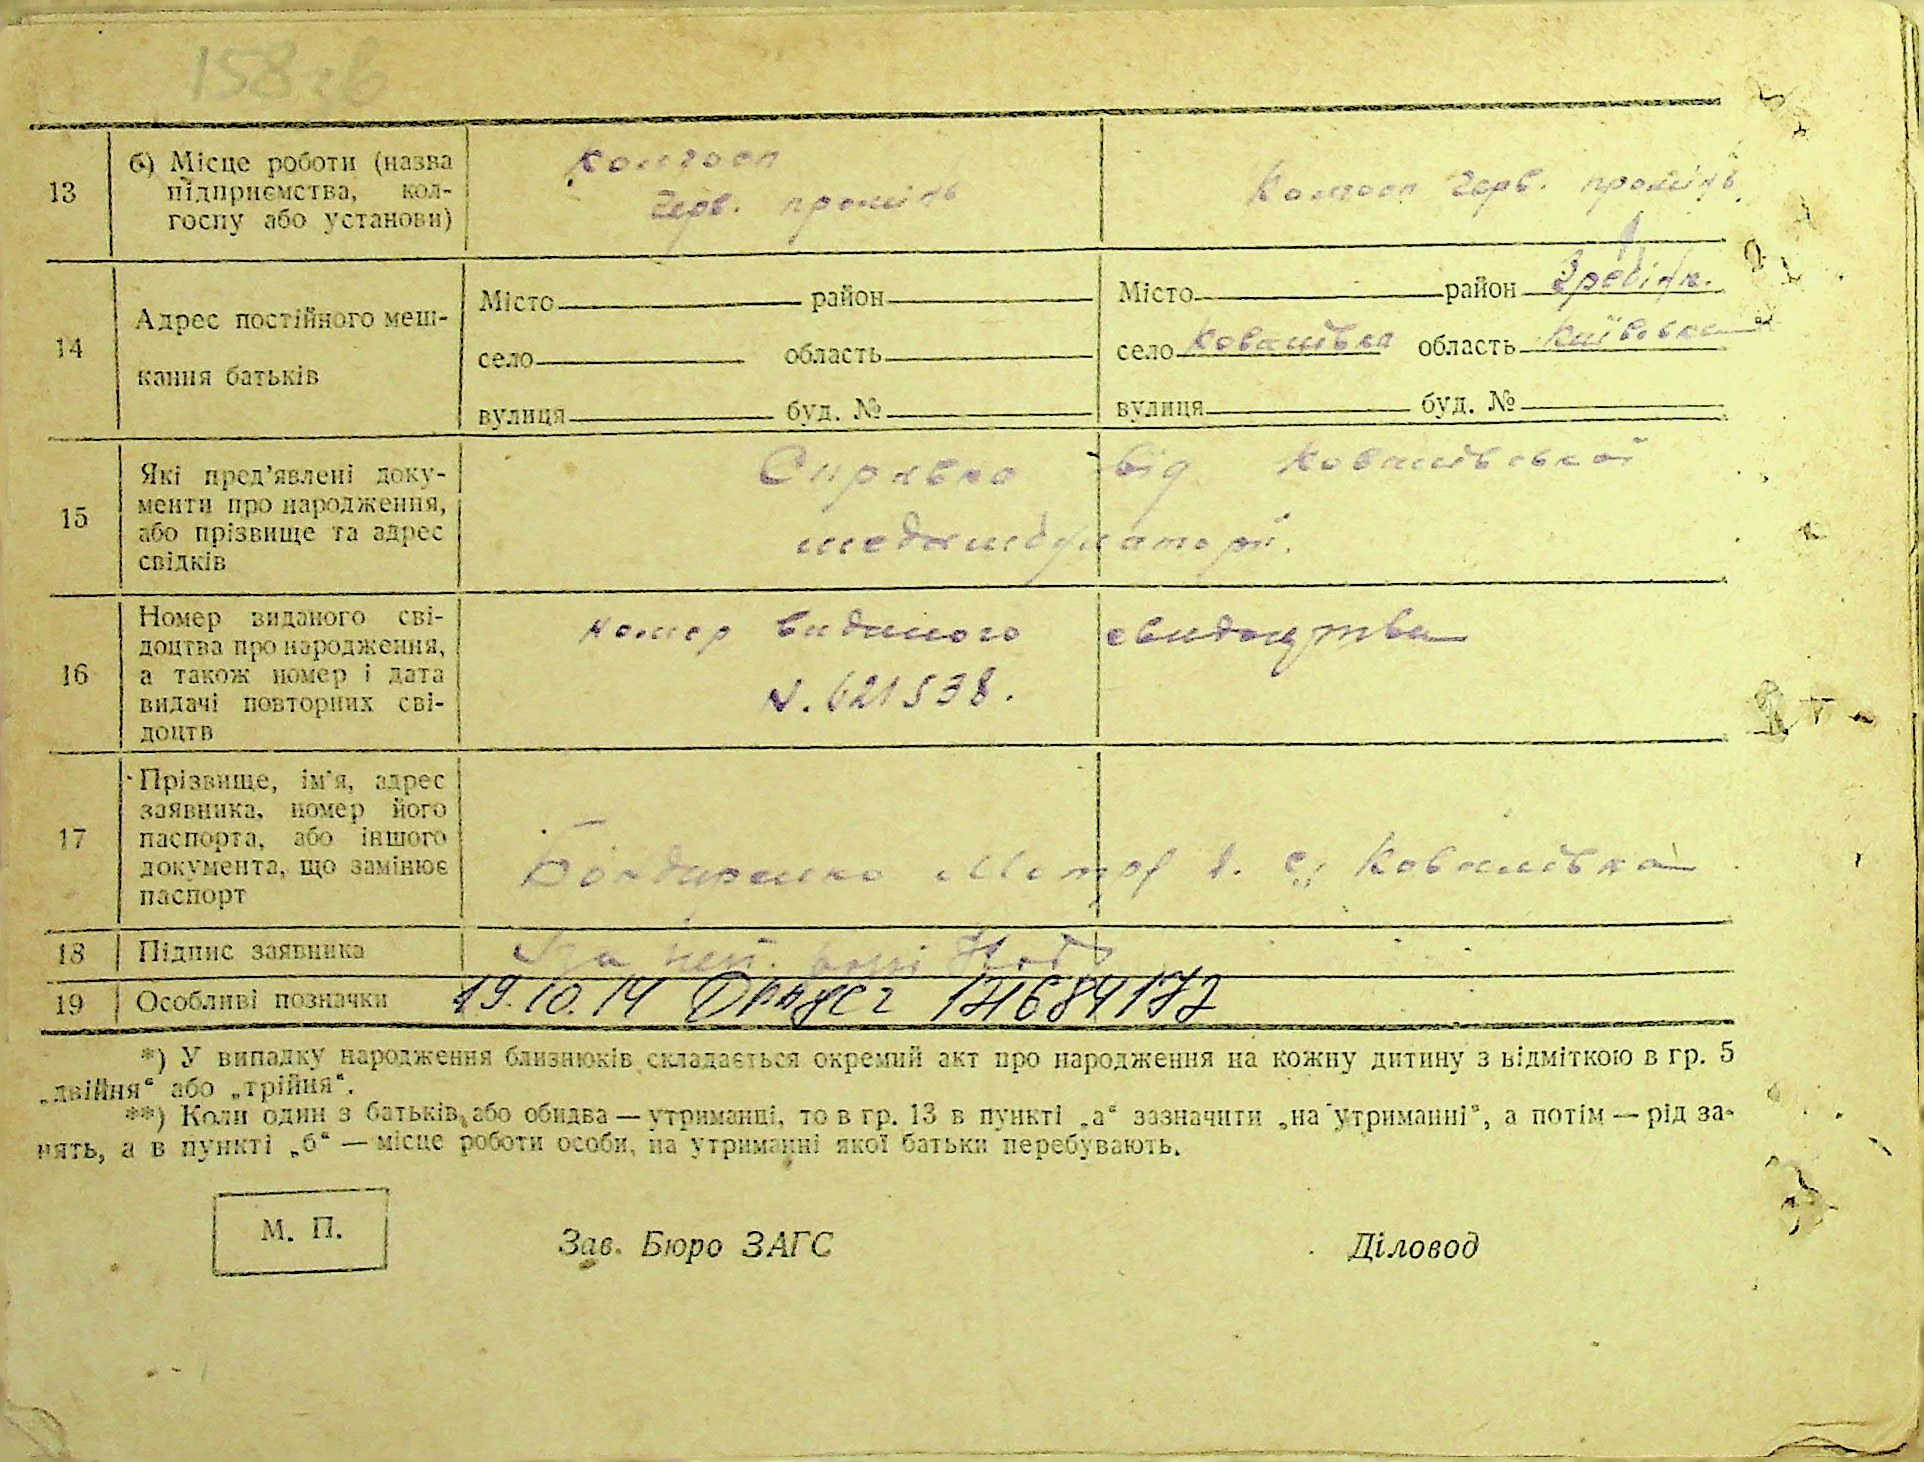 158 зв
13
б) Місце роботи (назва
підприємства, кол-
госпу або установи)
Колгосп
Черв. промінь
Колгосп Черв. промінь
14
Адрес постійного меш-
кання батьків
Місто район
село область
вулиця буд. №
Місто район Гребінк.
село Ковалівка область Київська
вулиця буд. №
15
Які пред'явлені доку-
менти про народження,
або прізвище та адрес
свідків
Справка від Ковалівської
медамбулаторії.
16
Номер виданого сві-
доцтва про народження,
а також номер і дата
видачі повторних сві-
доцтв
номер виданого свидоцтва
N. 621538.
17
Прізвище, ім'я, адрес
заявника, номер його
паспорта, або іншого
документа, що замінює
паспорт
Бондаренко с. Ковалівка
18
Підпис заявника
19
Особливі позначки
19.10.14
*) У випадку народження близнюків складається окремий акт про народження на кожну дитину з відміткою в гр. 5
„двійня“ або „трійня“.
**) Коли один з батьків або обидва — утриманці, то в гр. 13 в пункті „а“ зазначити „на утриманні“, а потім — рід за-
нять, а в пункті „б“ — місце роботи особи, на утриманні якої батьки перебувають.
М. П.
Зав. Бюро ЗАГС
Діловод